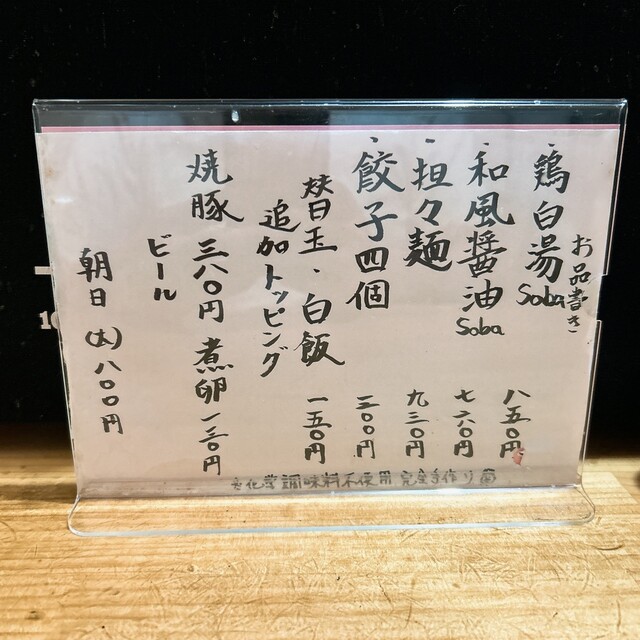 お品書き
・鶏白湯Soba 八五〇円
・和風醤油Soba 七六〇円
・担々麺 九三〇円
・餃子四個 二〇〇円
替玉・白飯 一五〇円
追加トッピング
焼豚 三八〇円 煮卵 一三〇円
ビール
朝日 (大) 八〇〇円
化学調味料不使用 完全手作り